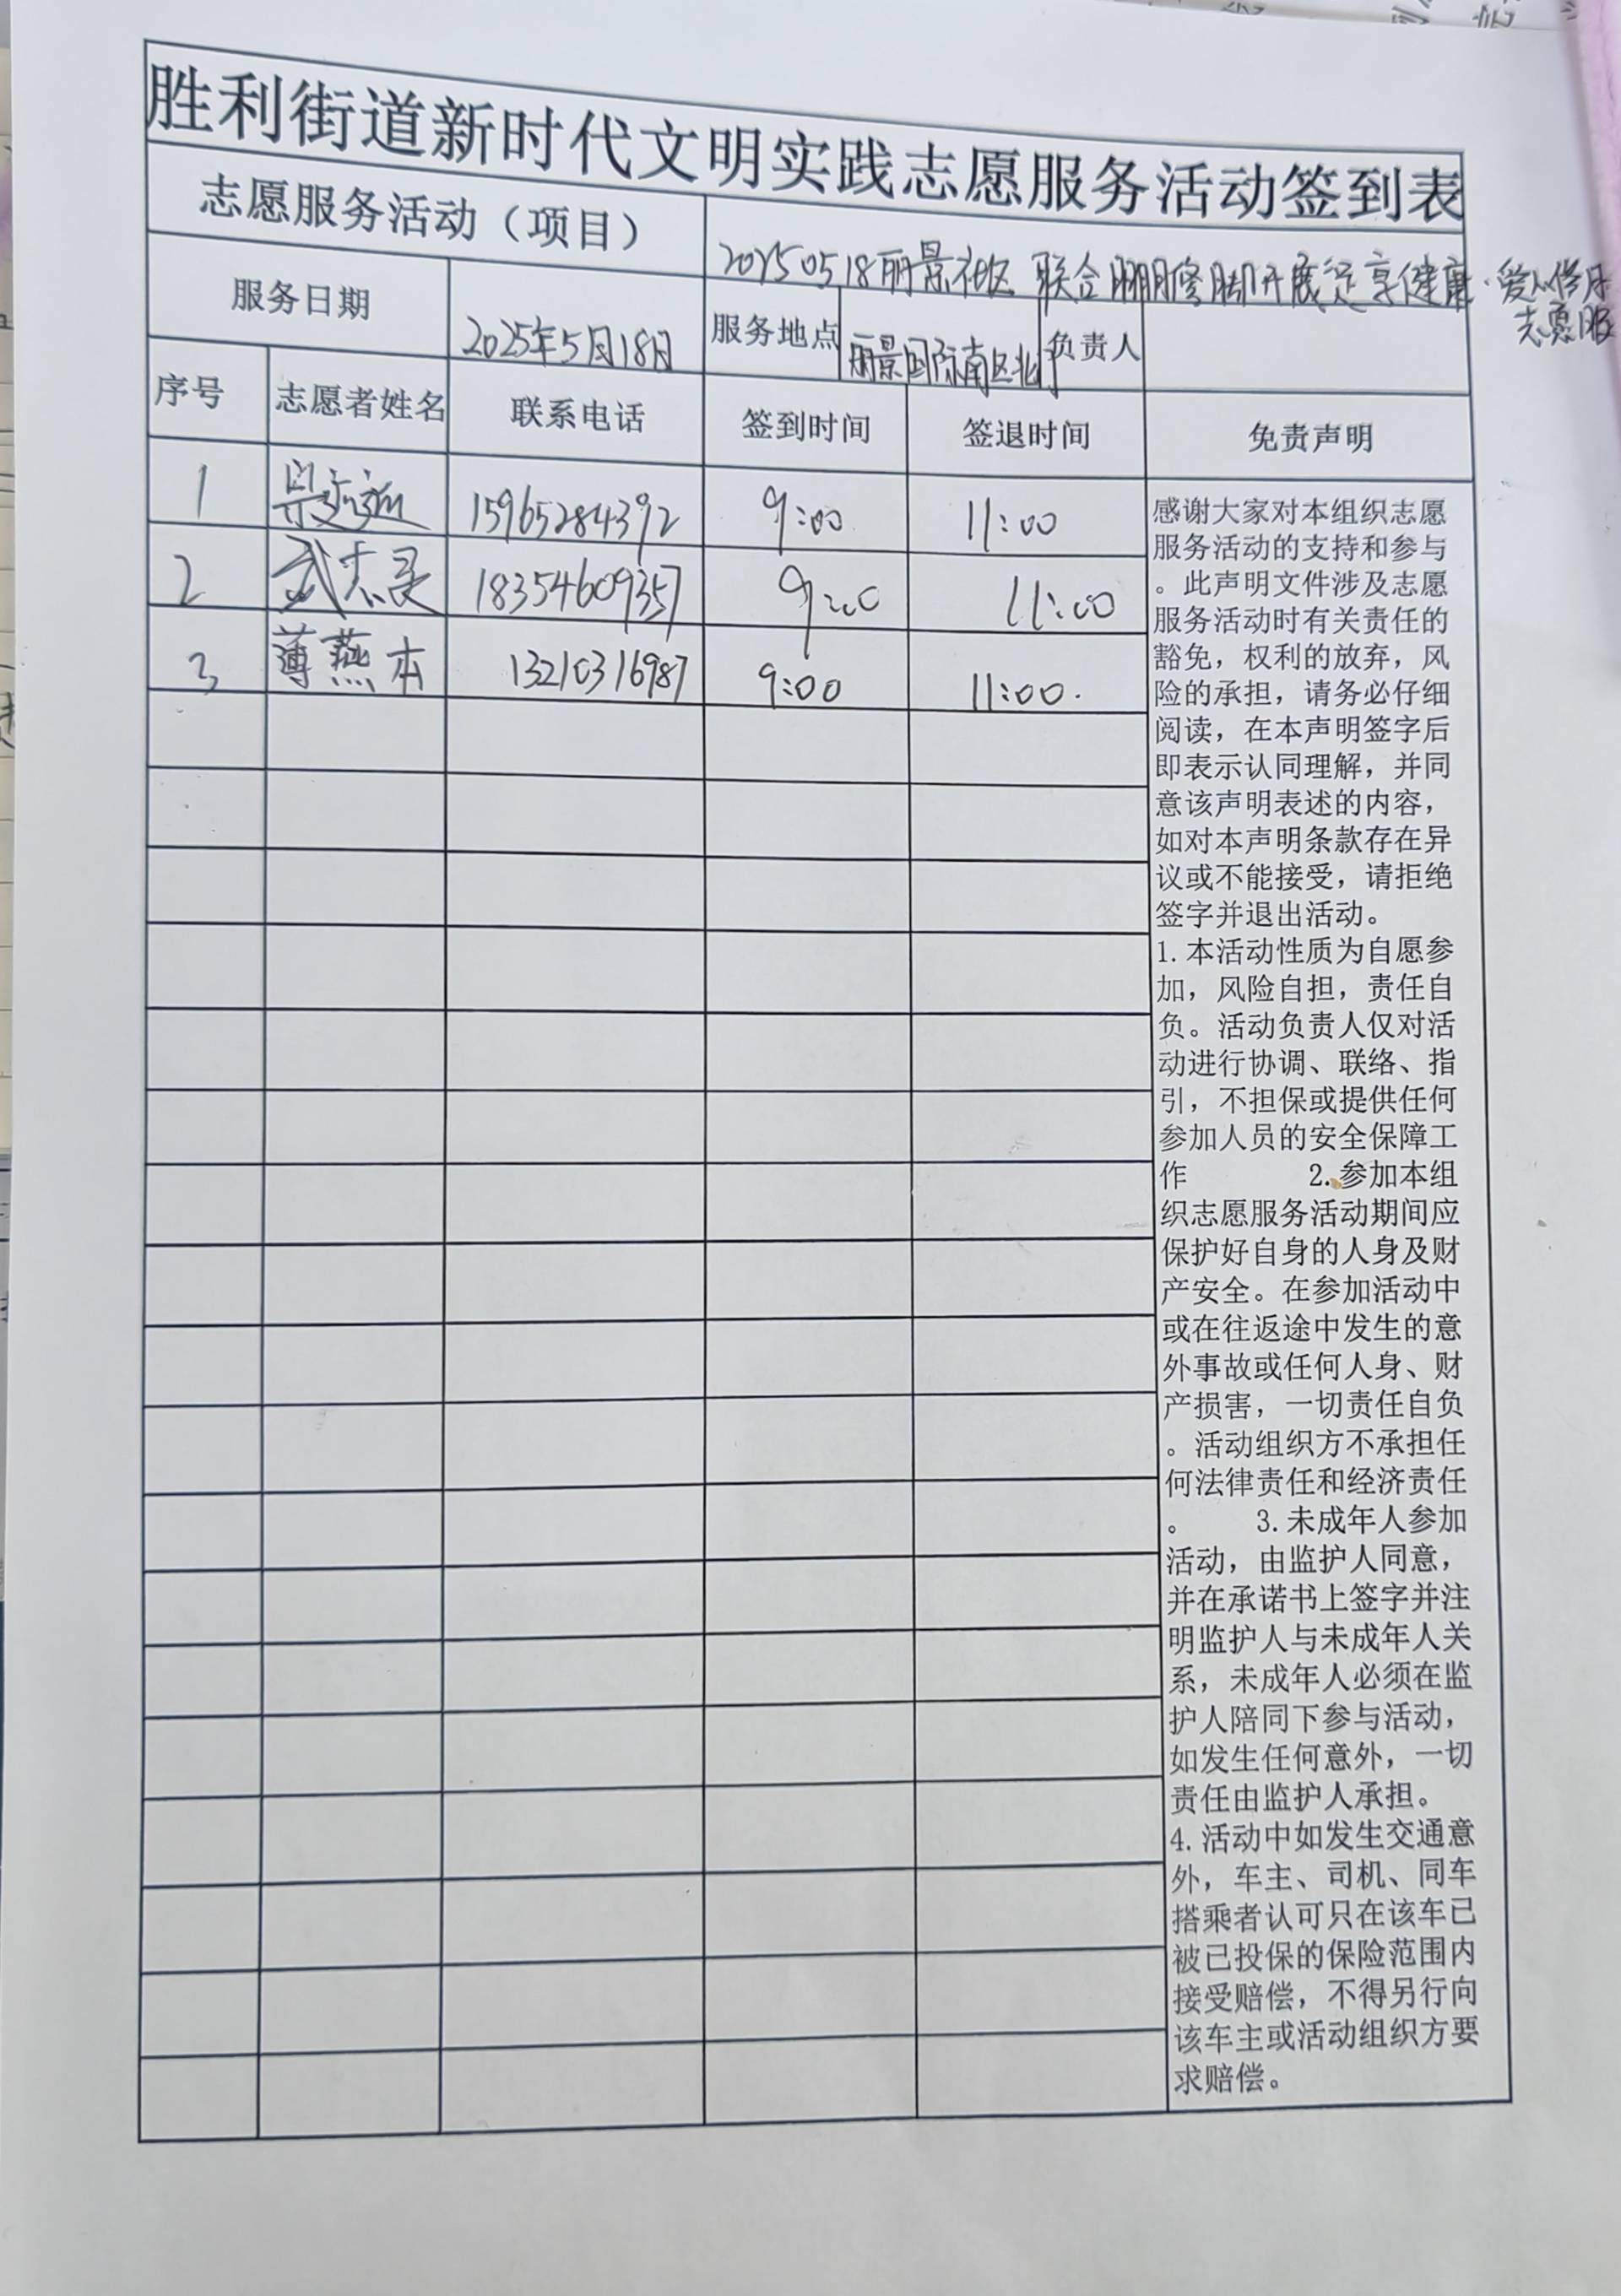 胜利街道新时代文明实践志愿服务活动签到表
志愿服务活动（项目） 20250518丽景社区 联合鹏月修脚开展足享健康·爱心修足
志愿服
服务日期 2025年5月18日 服务地点 丽景国际南区北门 负责人
序号 志愿者姓名 联系电话 签到时间 签退时间 免责声明
1 15965284392 9:00 11:00
2 武志灵 18354609357 9:00 11:00
3 薄燕本 13210316987 9:00 11:00.
感谢大家对本组织志愿
服务活动的支持和参与
。此声明文件涉及志愿
服务活动时有关责任的
豁免，权利的放弃，风
险的承担，请务必仔细
阅读，在本声明签字后
即表示认同理解，并同
意该声明表述的内容，
如对本声明条款存在异
议或不能接受，请拒绝
签字并退出活动。
1.本活动性质为自愿参
加，风险自担，责任自
负。活动负责人仅对活
动进行协调、联络、指
引，不担保或提供任何
参加人员的安全保障工
作 2.参加本组
织志愿服务活动期间应
保护好自身的人身及财
产安全。在参加活动中
或在往返途中发生的意
外事故或任何人身、财
产损害，一切责任自负
。活动组织方不承担任
何法律责任和经济责任
。 3.未成年人参加
活动，由监护人同意，
并在承诺书上签字并注
明监护人与未成年人关
系，未成年人必须在监
护人陪同下参与活动，
如发生任何意外，一切
责任由监护人承担。
4.活动中如发生交通意
外，车主、司机、同车
搭乘者认可只在该车已
被已投保的保险范围内
接受赔偿，不得另行向
该车主或活动组织方要
求赔偿。